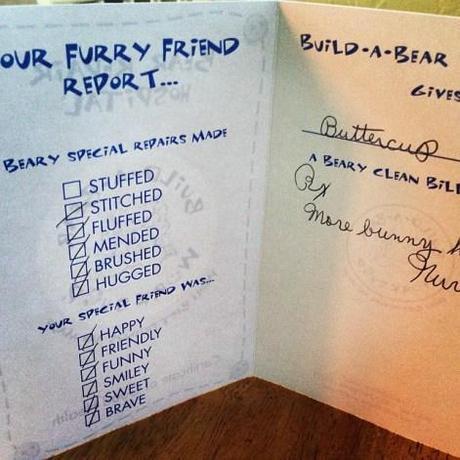 OUR FURRY FRIEND
REPORT...
BEARY SPECIAL REPAIRS MADE
STUFFED
STITCHED
FLUFFED
MENDED
BRUSHED
HUGGED
YOUR SPECIAL FRIEND WAS...
HAPPY
FRIENDLY
FUNNY
SMILEY
SWEET
BRAVE
BUILD-A-BEAR
GIVES
Buttercup
A BEARY CLEAN BIL
Rx
More bunny h
Nur